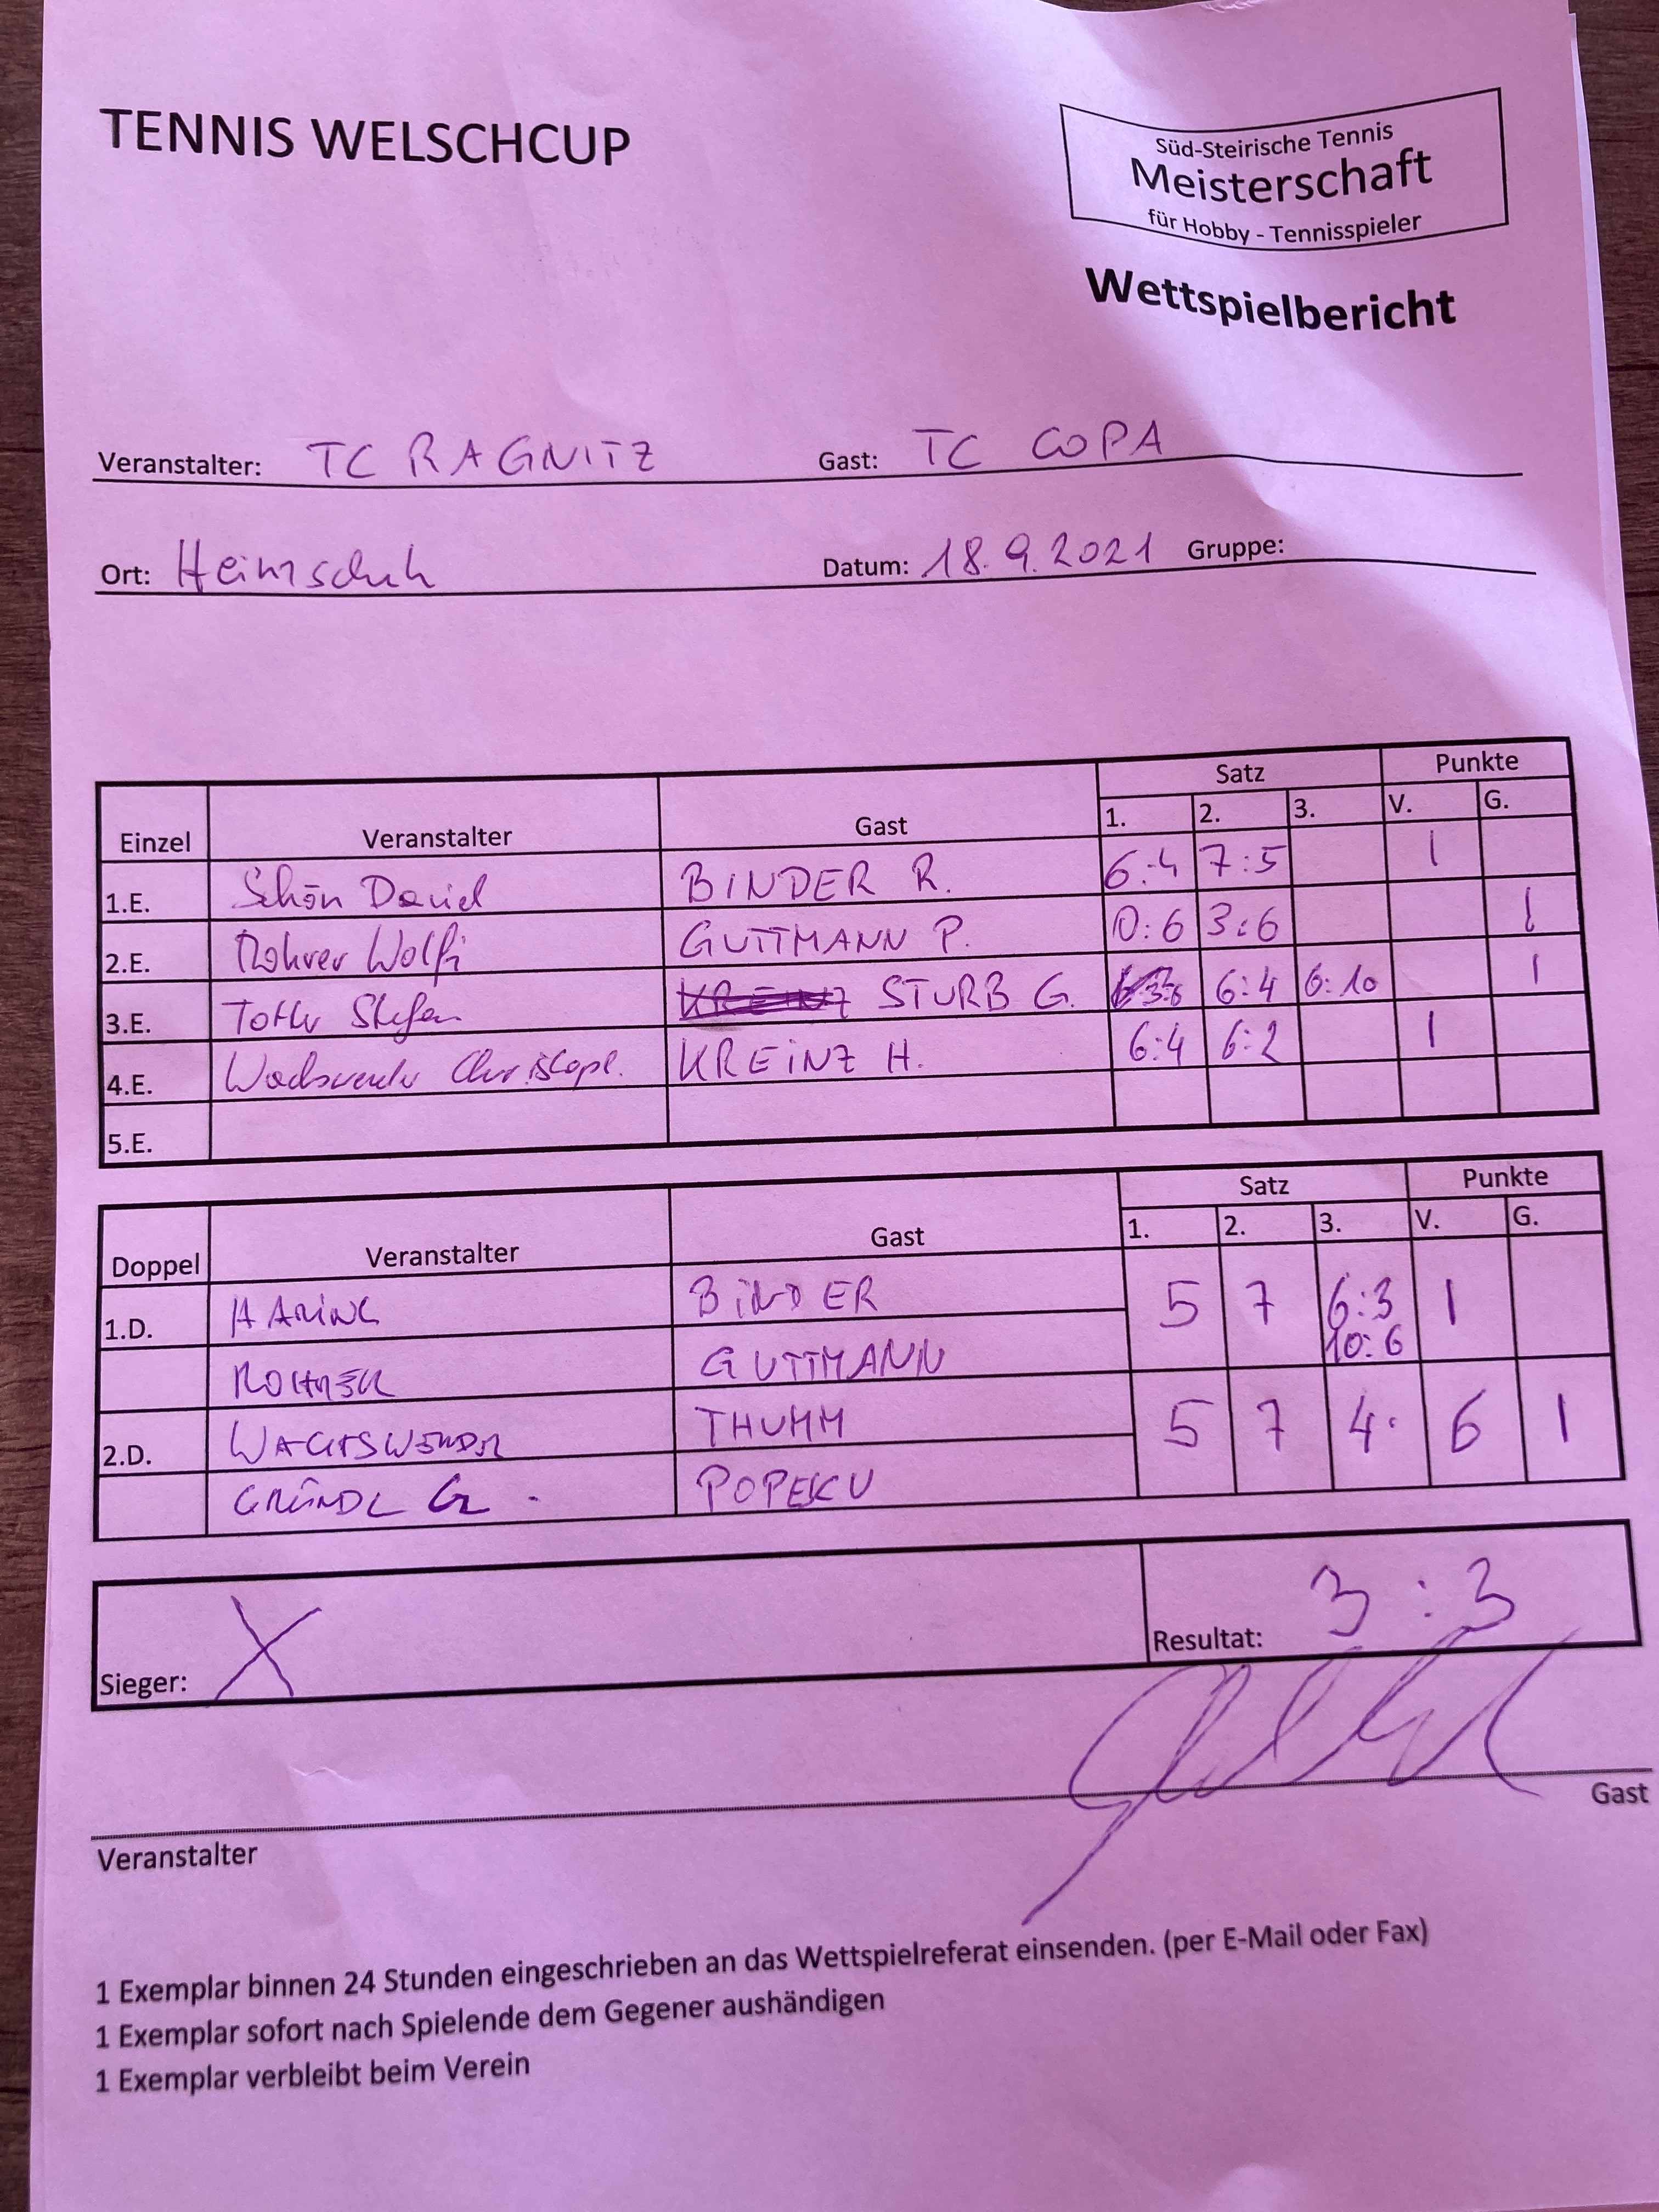 TENNIS WELSCHCUP
Süd-Steirische Tennis
Meisterschaft
für Hobby - Tennisspieler
Wettspielbericht
Veranstalter: TC RAGNITZ Gast: TC COPA
Ort: Heimschuh Datum: 18.9.2021 Gruppe:
Satz Punkte
Einzel Veranstalter Gast 1. 2. 3. V. G.
1.E. Schön David BINDER R. 6:4 7:5 1
2.E. Rohrer Wolfi GUTTMANN P. 0:6 3:6 1
3.E. Toth Stefan KREINZ STURB G. 3:6 6:4 6:10 1
4.E. KREINZ H. 6:4 6:2 1
5.E.
Satz Punkte
Doppel Veranstalter Gast 1. 2. 3. V. G.
1.D. HARING BINDER 5 7 6:3 1
10:6
ROHRER GUTTMANN
2.D. THUMM 5 7 4. 6 1
GRÜNDL G. POPESCU
Sieger: X Resultat: 3:3
Gast
Veranstalter
1 Exemplar binnen 24 Stunden eingeschrieben an das Wettspielreferat einsenden. (per E-Mail oder Fax)
1 Exemplar sofort nach Spielende dem Gegener aushändigen
1 Exemplar verbleibt beim Verein